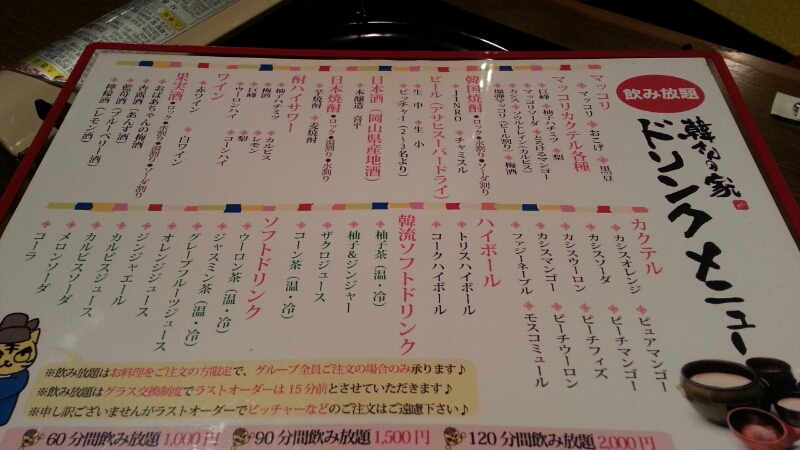 飲み放題
韓さんの家
ドリンクメニュー
マッコリ
マッコリ
おこげ
黒豆
マッコリカクテル各種
巨峰
柚子ハチミツ
梨
マッコリソーダ
とろけるマンゴー
カシス
ソルトレイン(カルピス)
爆弾マッコリ(ビール割り)
梅酒
韓国焼酎 ●ロック●水割り●ソーダ割り
JINRO
チャミスル
ビール(アサヒスーパードライ)
生 中
生 小
ピッチャー(2〜3名より)
日本酒(岡山県産地酒)
本醸造 喜平
日本焼酎 ●ロック●湯割り●水割り
芋焼酎
麦焼酎
酎ハイサワー
柚子ハチミツ
カルピス
梅酒
レモン
巨峰
梨
ウーロンハイ
コーンハイ
ワイン
赤ワイン
白ワイン
果実酒 ●ロック●水割り●湯割り●ソーダ割り
おばあちゃんの梅酒
杏露酒(あんず酒)
藍苺酒(ブルーベリー酒)
檸檬酒(レモン酒)
カクテル
カシスオレンジ
ピュアマンゴー
カシスソーダ
ピーチマンゴー
カシスウーロン
ピーチフィズ
カシスマンゴー
ピーチウーロン
ファジーネーブル
モスコミュール
ハイボール
トリスハイボール
コークハイボール
韓流ソフトドリンク
柚子茶(温・冷)
柚子&ジンジャー
ザクロジュース
コーン茶(温・冷)
ソフトドリンク
ウーロン茶(温・冷)
ジャスミン茶(温・冷)
グレープフルーツジュース
オレンジジュース
ジンジャエール
カルピスジュース
カルピスソーダ
メロンソーダ
コーラ
※飲み放題はお料理をご注文の方限定で、グループ全員ご注文の場合のみ承ります♪
※飲み放題はグラス交換制度でラストオーダーは15分前とさせていただきます♪
※申し訳ございませんがラストオーダーでピッチャーなどのご注文はご遠慮下さい♪
60分間飲み放題1,000円
90分間飲み放題1,500円
120分間飲み放題2,000円